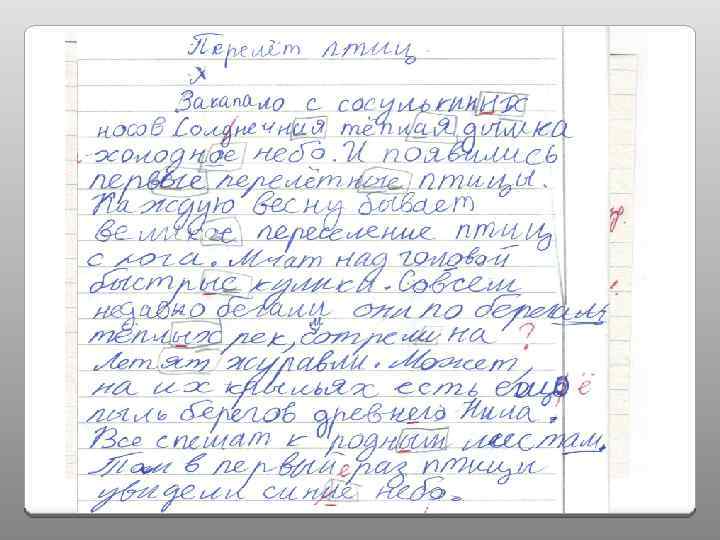 Перелёт птиц.
Закапало с сосулькиных
носов Солнечная тёплая дымка
холодное небо. И появились
первые перелётные птицы.
Каждую весну бывает
великое переселение птиц
с юга. Мчат над головой
быстрые кулики. Совсем
недавно бегали они по берегам
тёплых рек, на ?
Летят журавли. Может
на их крыльях есть ещё ё
пыль берегов древнего Нила.
Все спешат к родным местам.
Там в первый раз птицы
увидели синие небо.